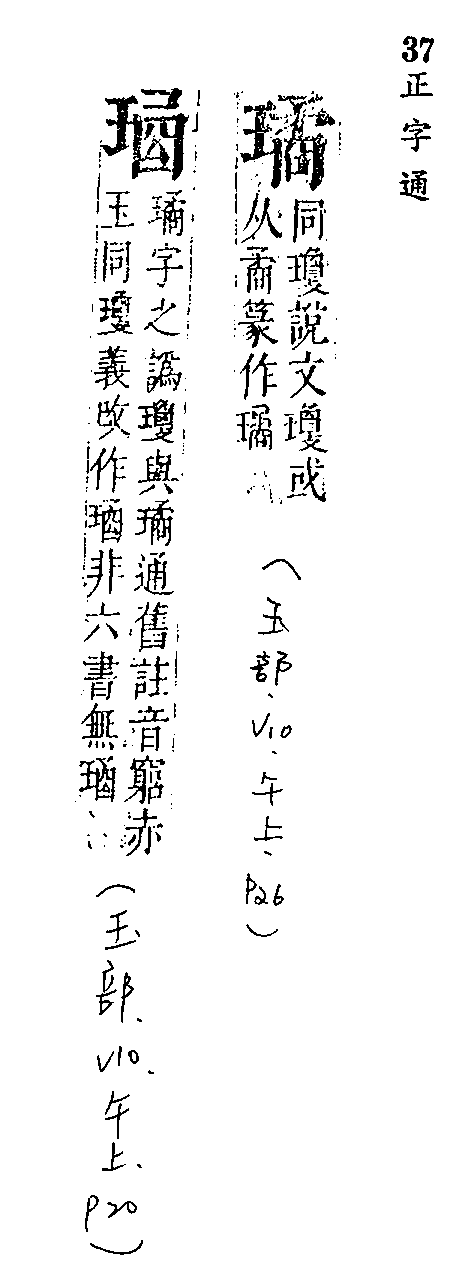 37正字通
璚
同瓊說文瓊或
从矞篆作璚
(玉部、V10、午上、P26)
璚字之譌瓊與璚通舊註音窮赤
玉同瓊義改作非六書無
(玉部、V10、午上、P20)